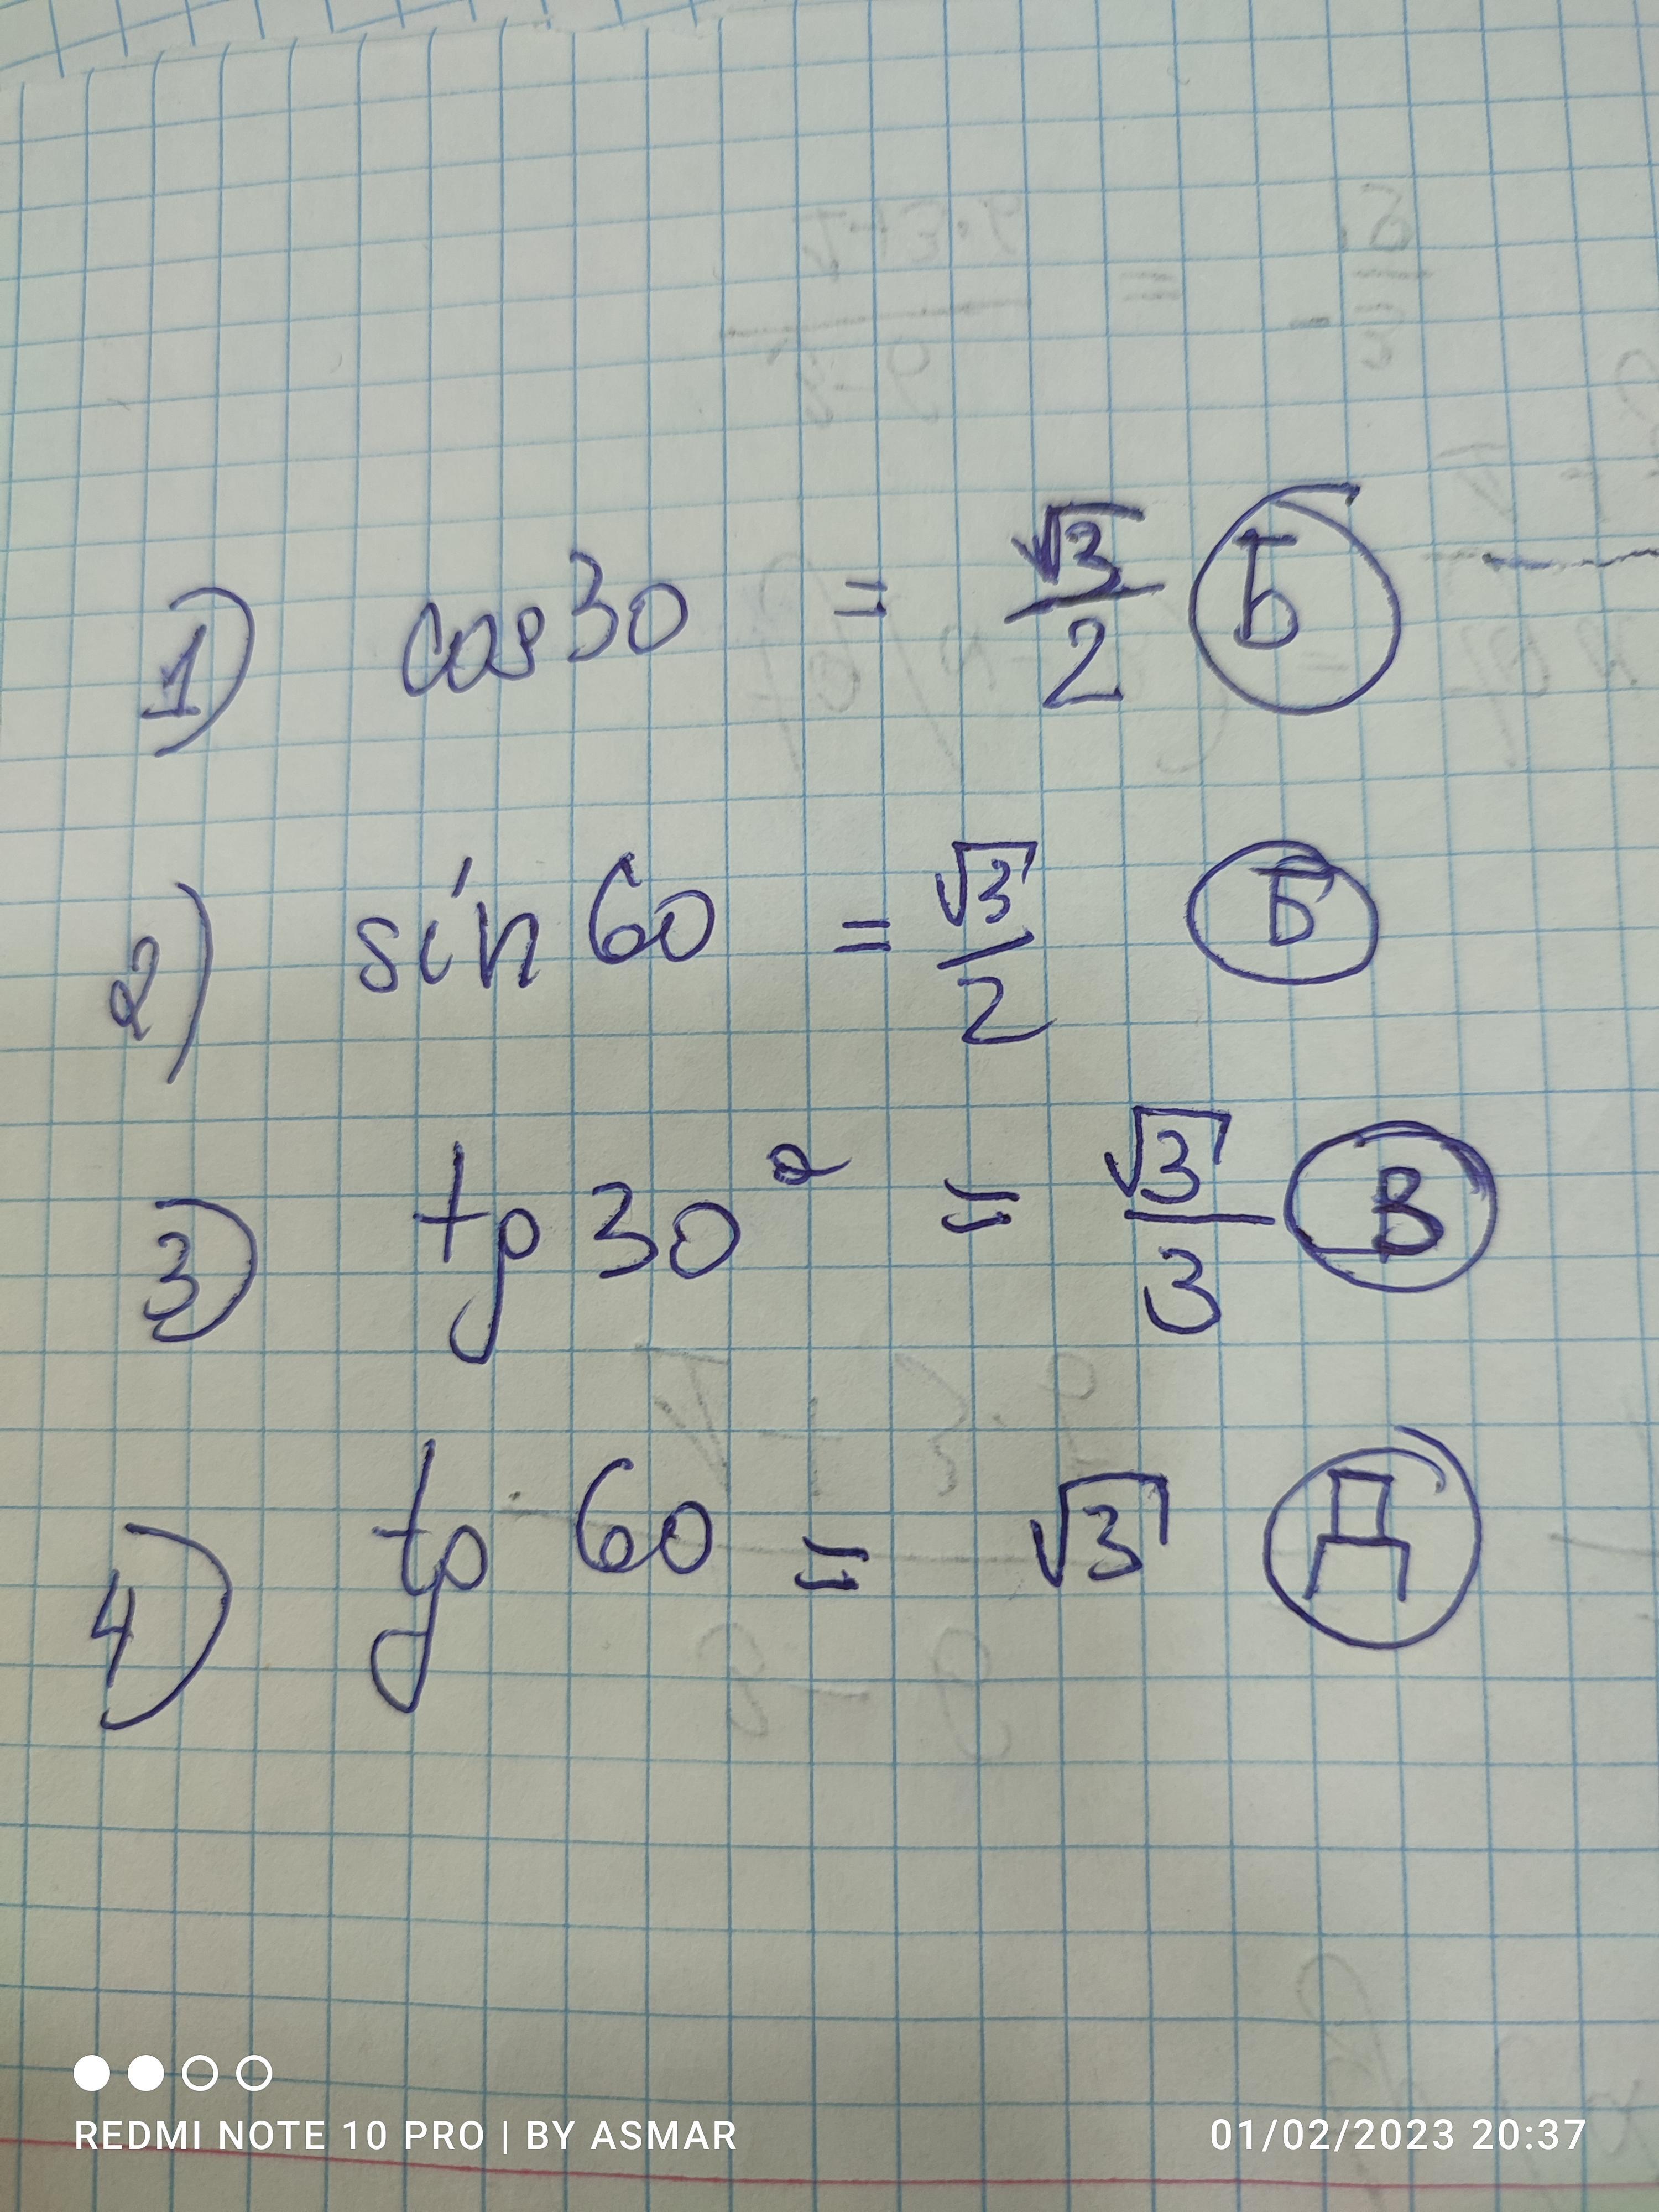 1) cos 30 = √3/2 Б
2) sin 60 = √3/2 Б
3) tg 30² = √3/3 В
4) tg 60 = √3 Д
REDMI NOTE 10 PRO | BY ASMAR
01/02/2023 20:37